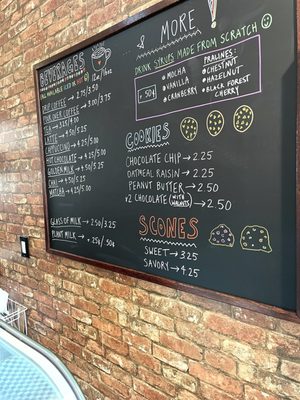 BEVERAGES
12oz/16oz
DRIP COFFEE → 2.75/3.50
POUR OVER COFFEE → 3.00/3.75
LATTE → 4.50/5.25
CAPPUCCINO → 4.25/5.00
HOT CHOCOLATE → 4.25/5.00
GOLDEN MILK → 4.50/5.25
CHAI → 4.50/5.25
MATCHA → 4.25/5.00
GLASS OF MILK → 2.50/3.25
PLANT MILK → +25¢/50¢
& MORE!
DRINK SYRUPS MADE FROM SCRATCH
+50¢
• MOCHA
• VANILLA
• CRANBERRY
PRALINES:
• CHESTNUT
• HAZELNUT
• BLACK FOREST CHERRY
COOKIES
CHOCOLATE CHIP → 2.25
OATMEAL RAISIN → 2.25
PEANUT BUTTER → 2.50
x2 CHOCOLATE (WITH WALNUTS) → 2.50
SCONES
SWEET → 3.25
SAVORY → 4.25